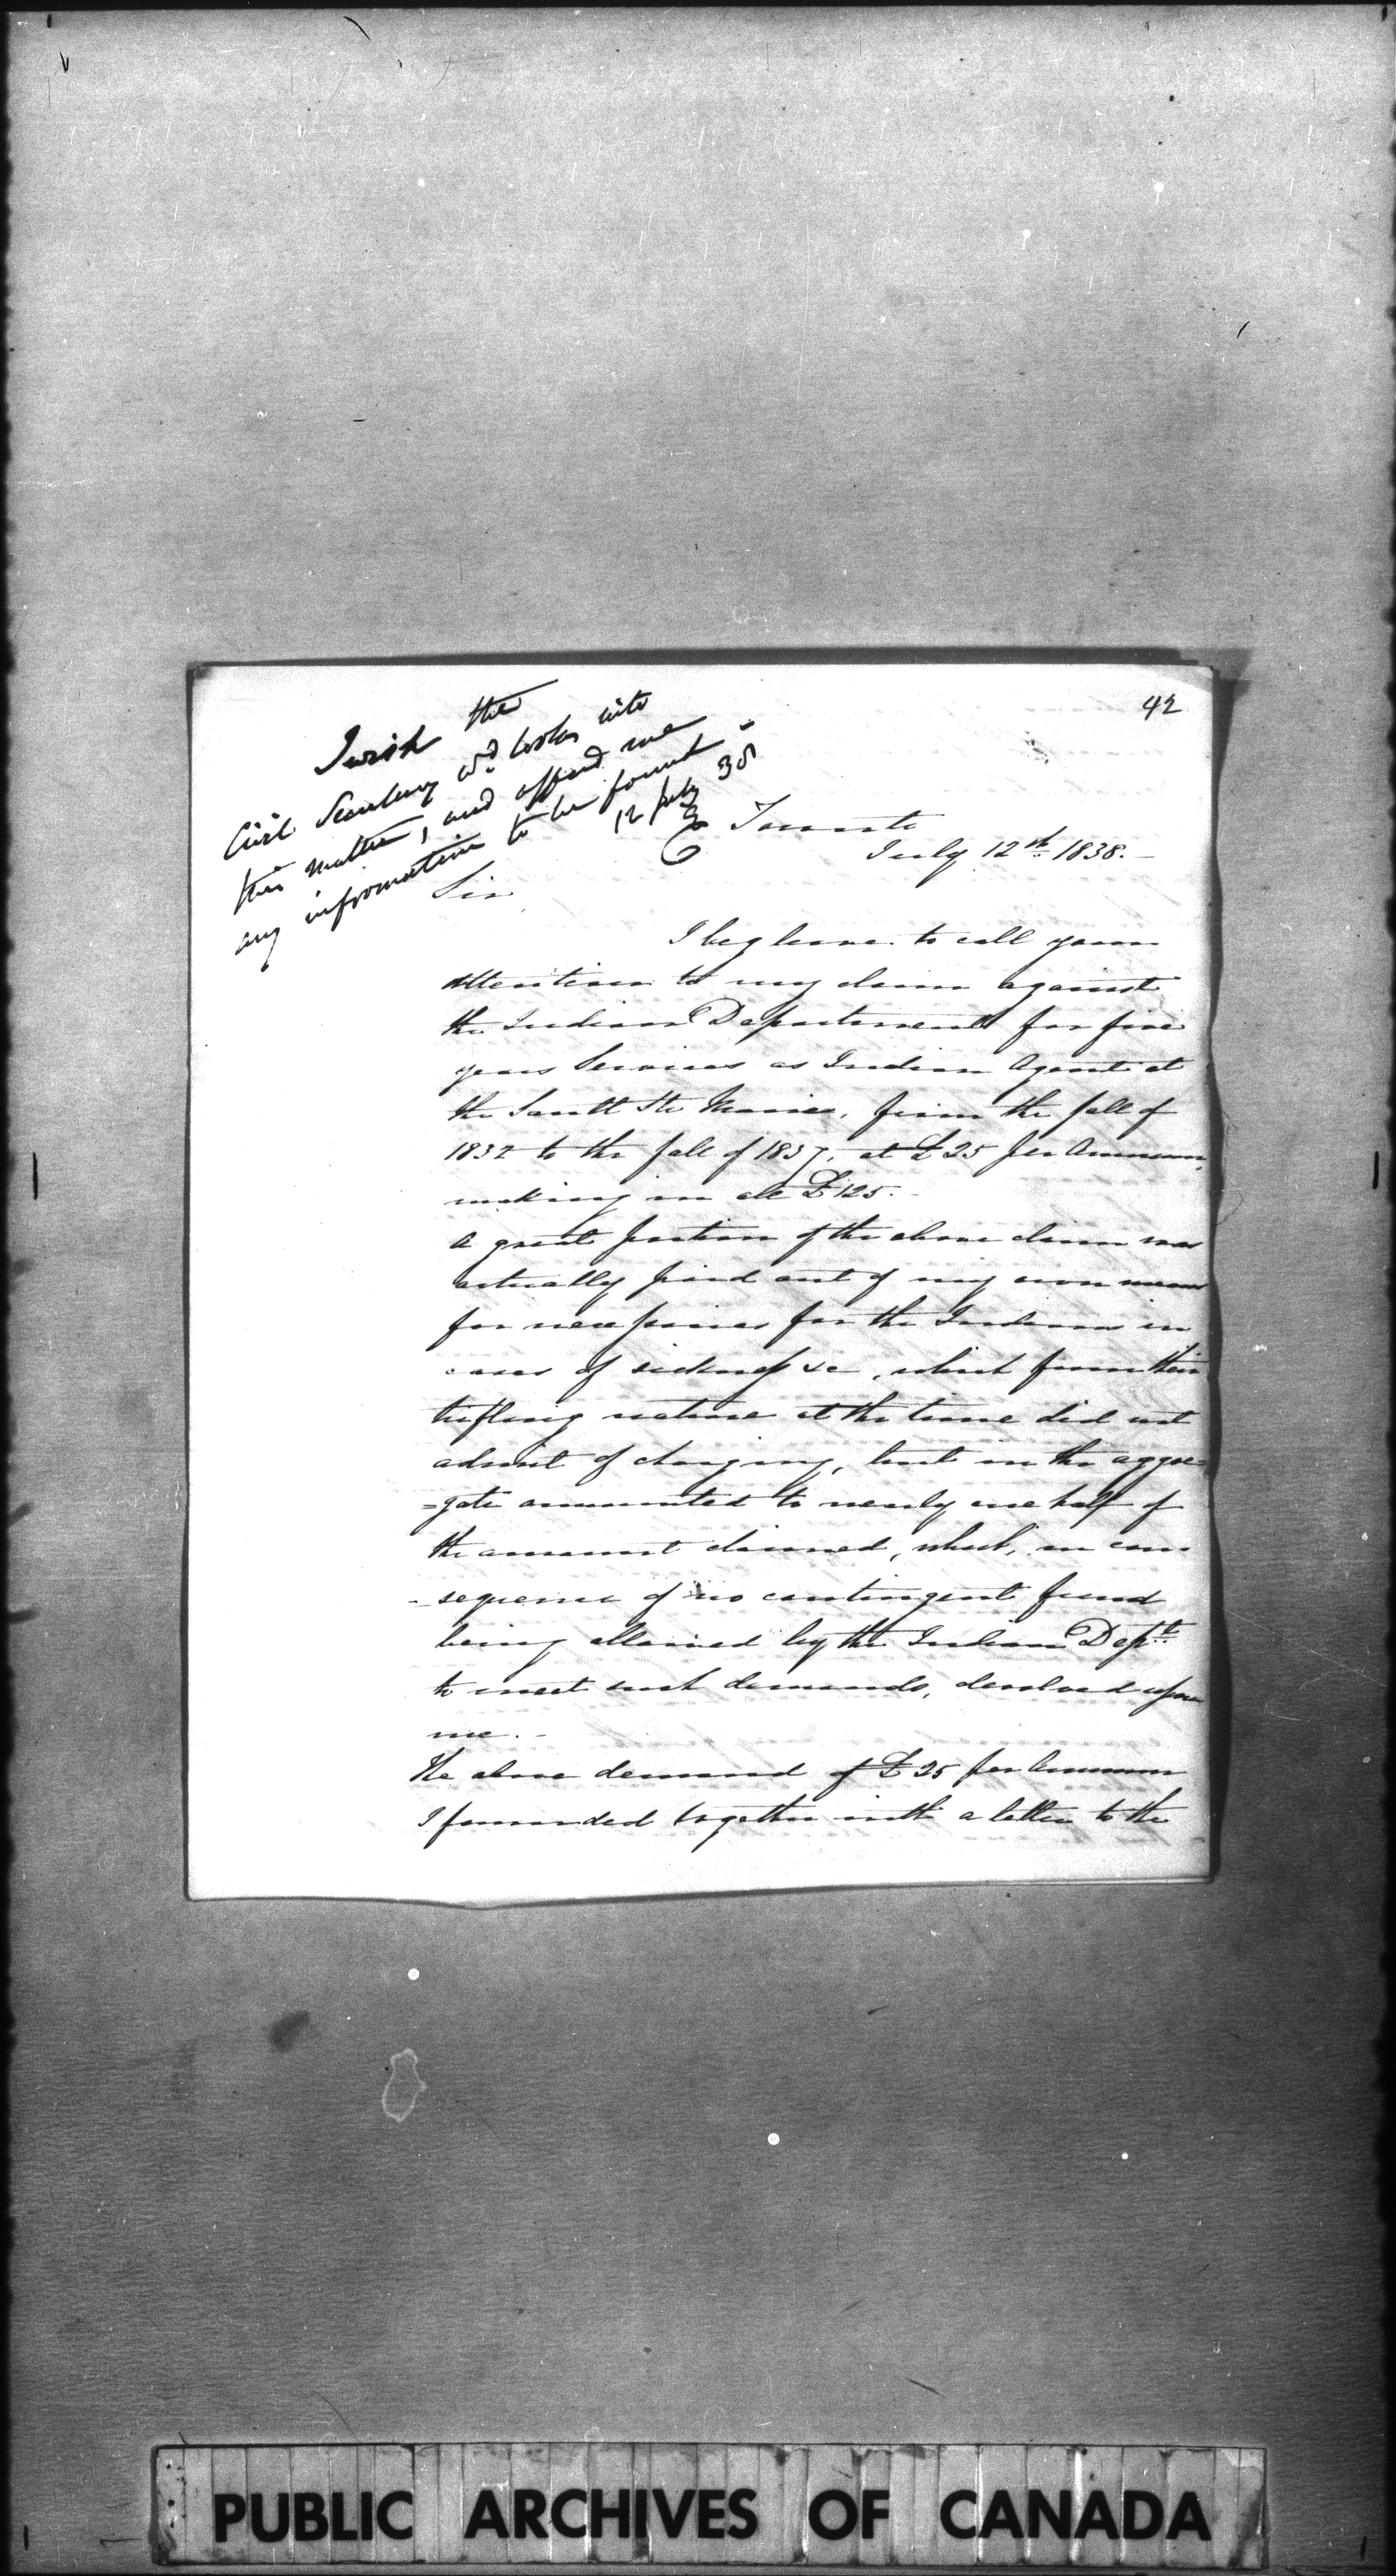 42
I wish the
Civil Secretary wd. look into
this matter, and afford me
any information to be found
12 July 38
Toronto
July 12th. 1838.
Sir
I beg leave to call your
attention to my claim against
the Indian Department for five
years Services as Indian Agent at
the Sault Ste Maries, from the fall of
1832 to the fall of 1837, at £25 per Annum,
making in all £125.
A great portion of the above claim was
actually paid out of my own means
for necessaries for the Indians in
cases of sickness &c, which from their
trifling nature at the time did not
admit of charging, but in the aggre-
-gate amounted to nearly one half of
the amount claimed, which, in con
-sequence of no contingent fund
being allowed by the Indian Dept.
to meet such demands, devolved upon
me. -
The above demand of £25 per Annum
I forwarded together with a letter to the
PUBLIC ARCHIVES OF CANADA